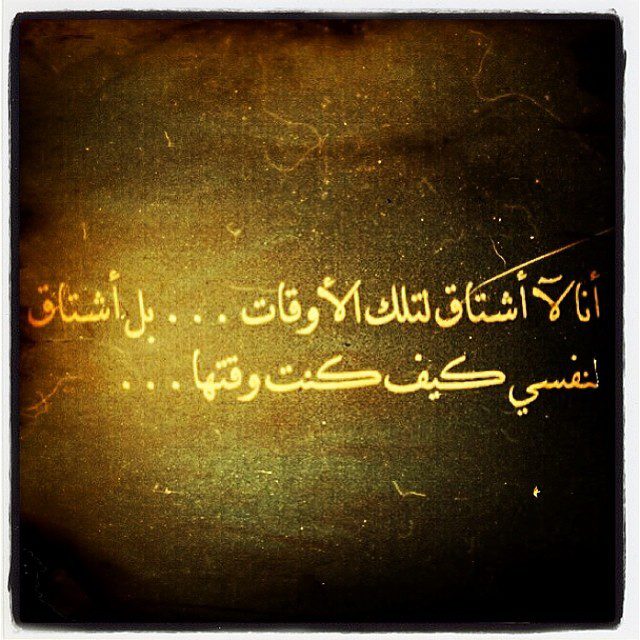 أنا لآ أشتاق لتلك الأوقات . . . بل أشتاق
لنفسي كيف كنت وقتها . . .